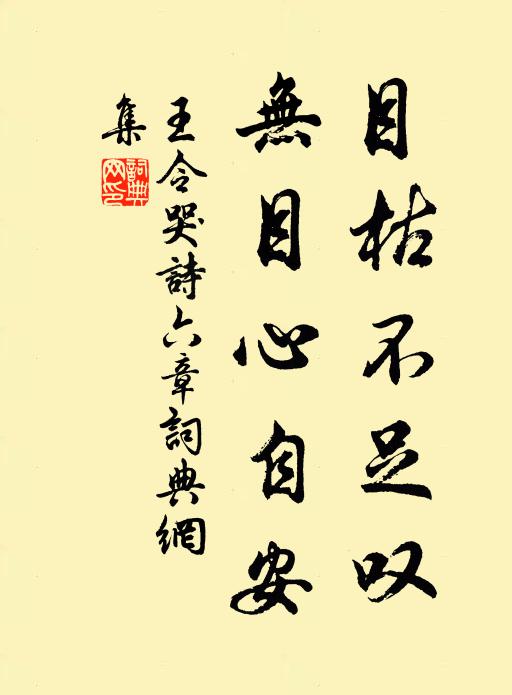 目枯不足叹
無目心自安
王令哭詩六章詞典網
集
詞典網印